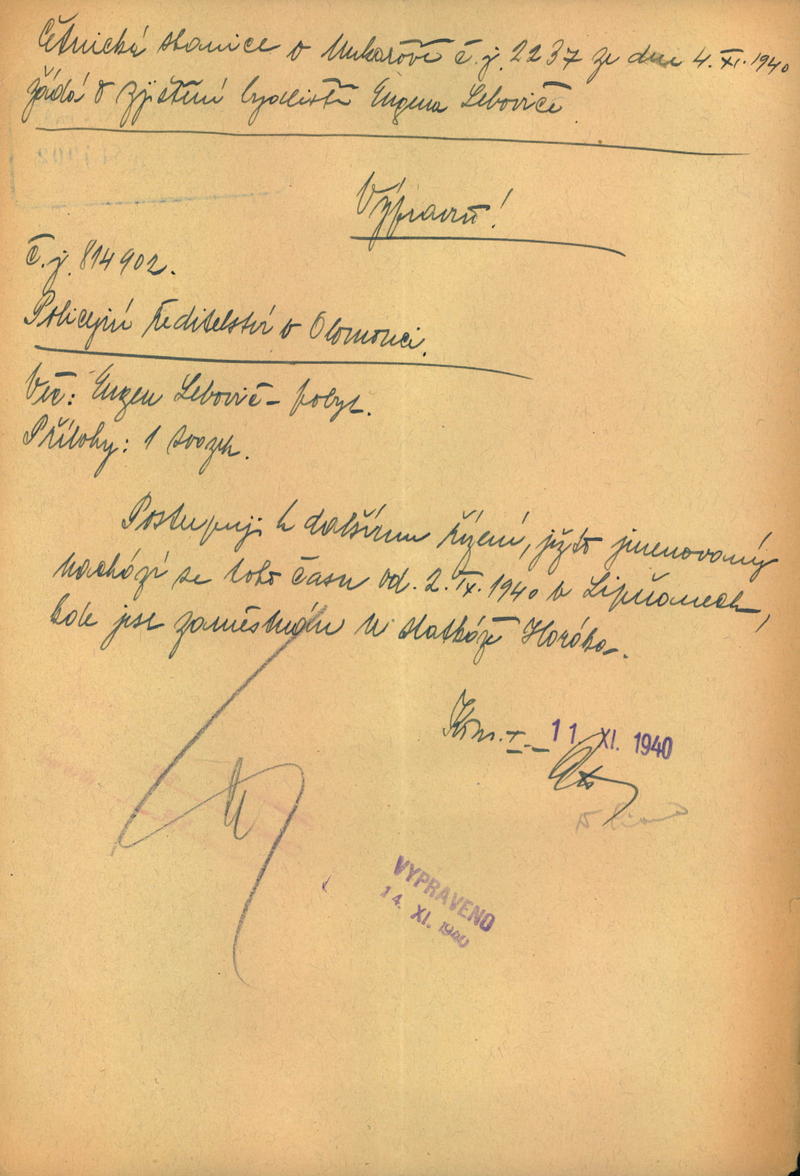 Četnická stanice v Mukařově č.j. 2237 ze dne 4. XI. 1940
žádá o zjištění bydliště Eugena Leboviče
Výpravně!
č.j. 814902.
Policejní ředitelství v Olomouci.
Věc: Eugen Lebovič – pobyt.
Přílohy: 1 svazek.
Postupuji k dalšímu řízení, ježto jmenovaný
nachází se toho času od. 2. IX. 1940 v Lipňanech,
kde jest zaměstnán u statkáře Horáka.
11. XI. 1940
VYPRAVENO
14. XI. 1940